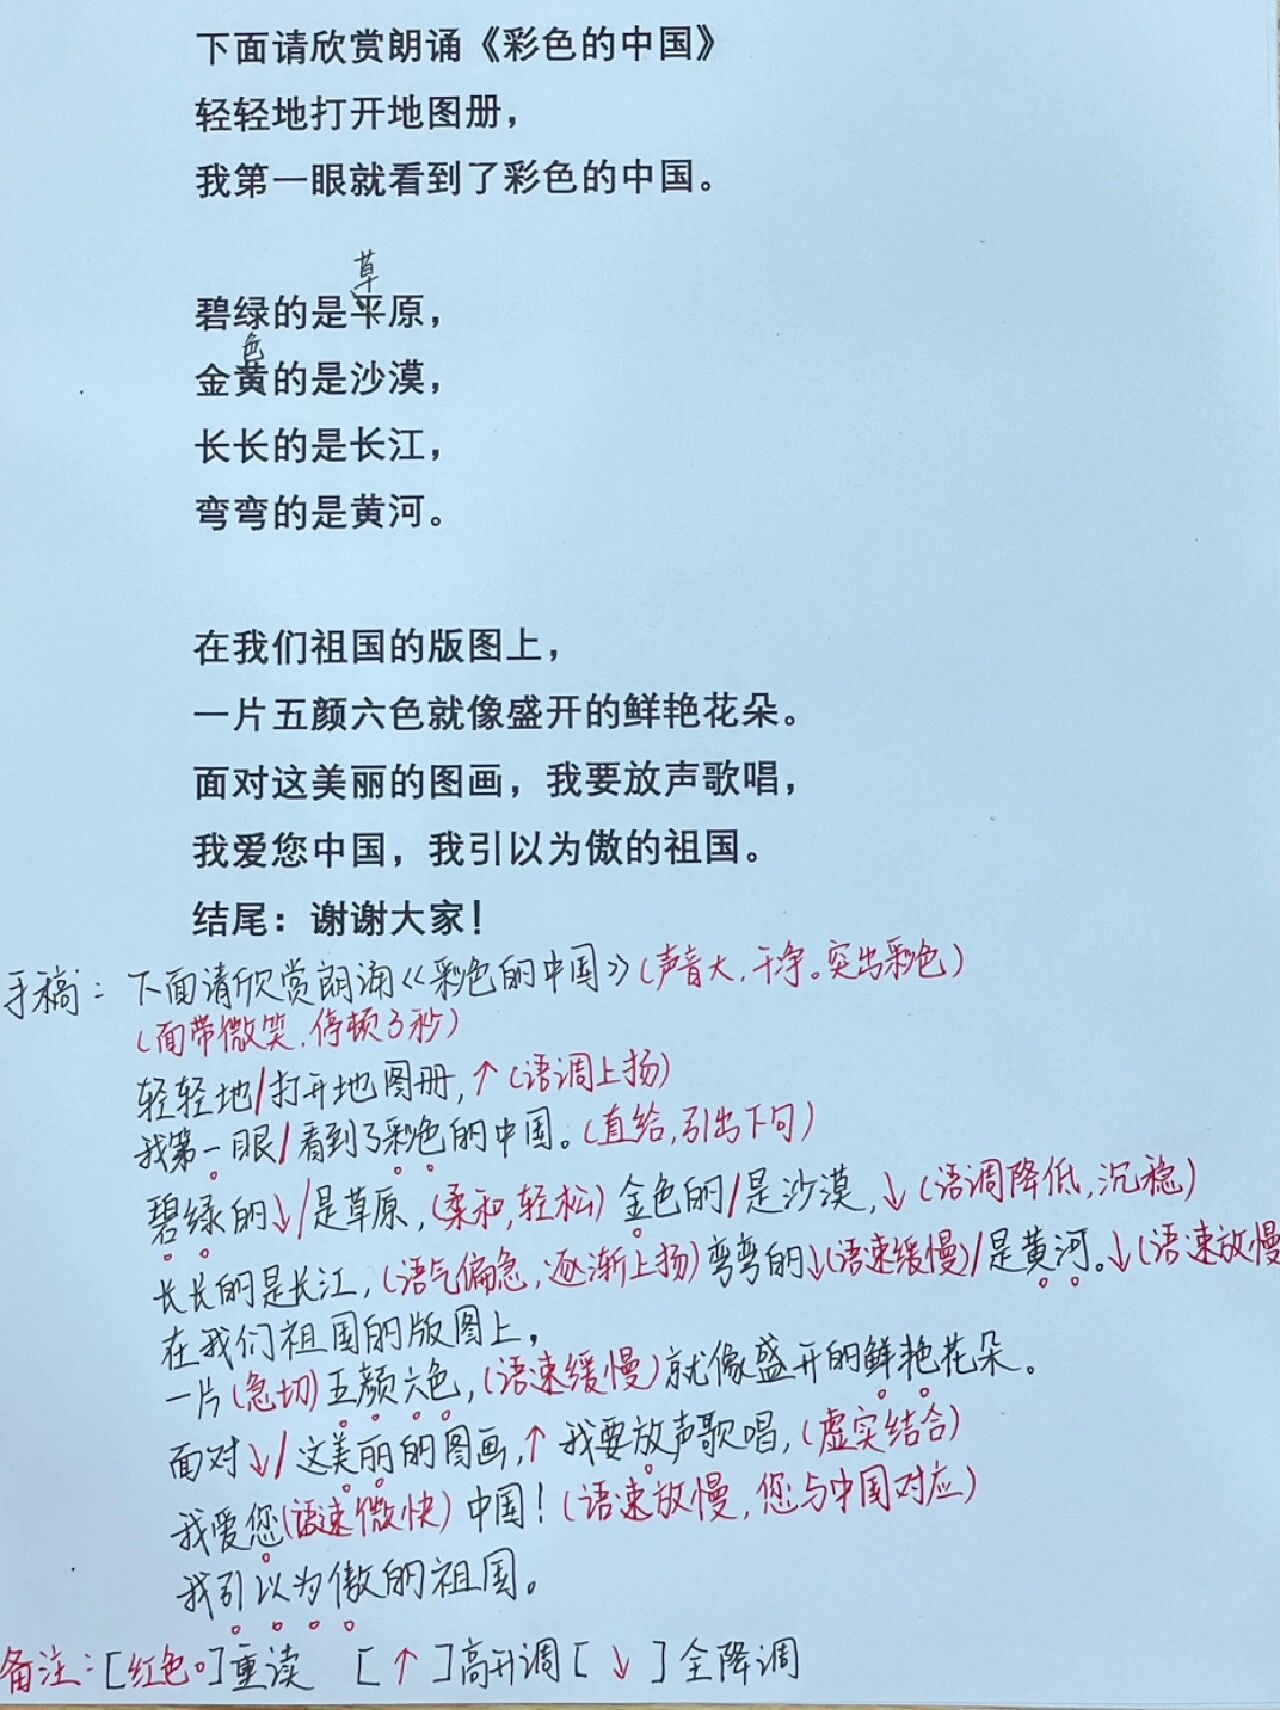 下面请欣赏朗诵《彩色的中国》
轻轻地打开地图册，
我第一眼就看到了彩色的中国。
草
碧绿的是平原，
色
金黄的是沙漠，
长长的是长江，
弯弯的是黄河。
在我们祖国的版图上，
一片五颜六色就像盛开的鲜艳花朵。
面对这美丽的图画，我要放声歌唱，
我爱您中国，我引以为傲的祖国。
结尾：谢谢大家！
手稿：下面请欣赏朗诵《彩色的中国》（声音大，干净。突出彩色）
（面带微笑，停顿3秒）
轻轻地/打开地图册，↑（语调上扬）
我第一眼/看到了彩色的中国。（直给，引出下句）
碧绿的↓/是草原，（柔和，轻松）金色的/是沙漠，↓（语调降低，沉稳）
长长的是长江，（语气偏急，逐渐上扬）弯弯的↓（语速缓慢）/是黄河。↓（语速放慢
在我们祖国的版图上，
一片（急切）五颜六色，（语速缓慢）就像盛开的鲜艳花朵。
面对↓/这美丽的图画，↑我要放声歌唱，（虚实结合）
我爱您（语速微快）中国！（语速放慢，您与中国对应）
我引以为傲的祖国。
备注：[红色。]重读 [↑]高升调[↓]全降调